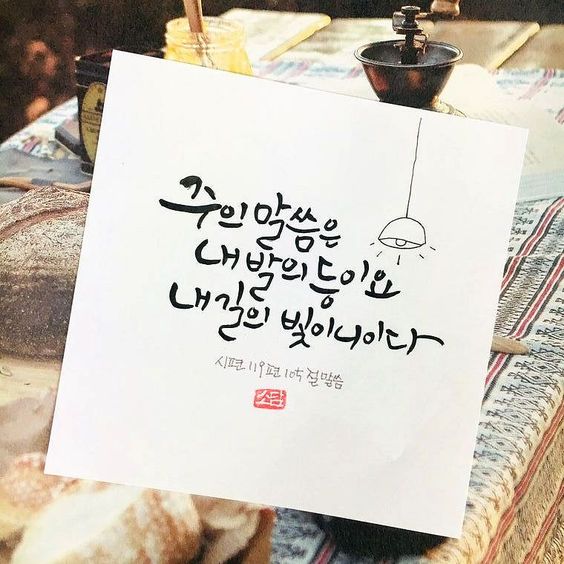 주의 말씀은
내 발의 등이요
내 길의 빛이니이다
시편 119편 105절 말씀
소담